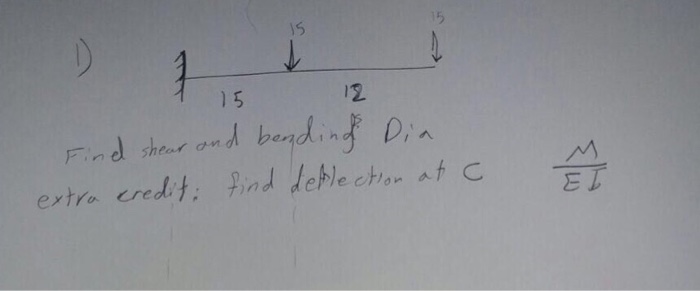 15
15
1)
15 12
Find shear and bending Dia
extra credit: find deflection at C
M
EI